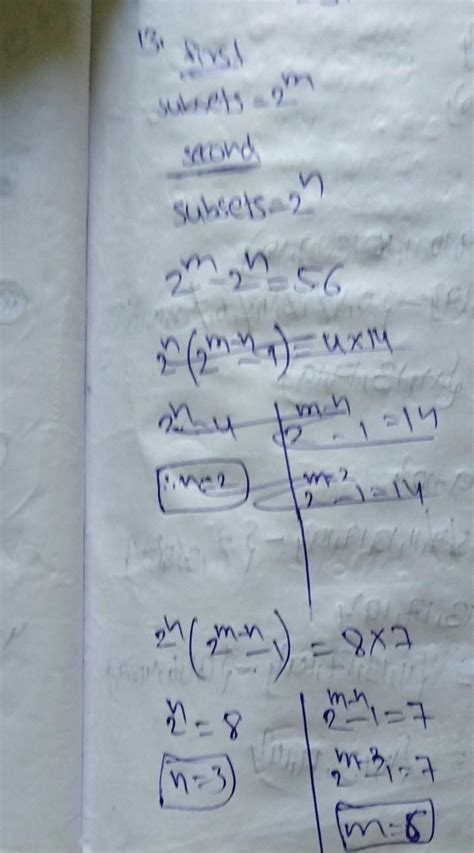 13. first
subsets = 2^m
second
subsets = 2^n
2^m - 2^n = 56
2^n (2^{m-n} - 1) = 4 × 14
2^n = 4 | 2^{m-n} - 1 = 14
∴ n = 2 | 2^{m-2} - 1 = 14
2^n (2^{m-n} - 1) = 8 × 7
2^n = 8 | 2^{m-n} - 1 = 7
n = 3 | 2^{m-3} - 1 = 7
m = 6